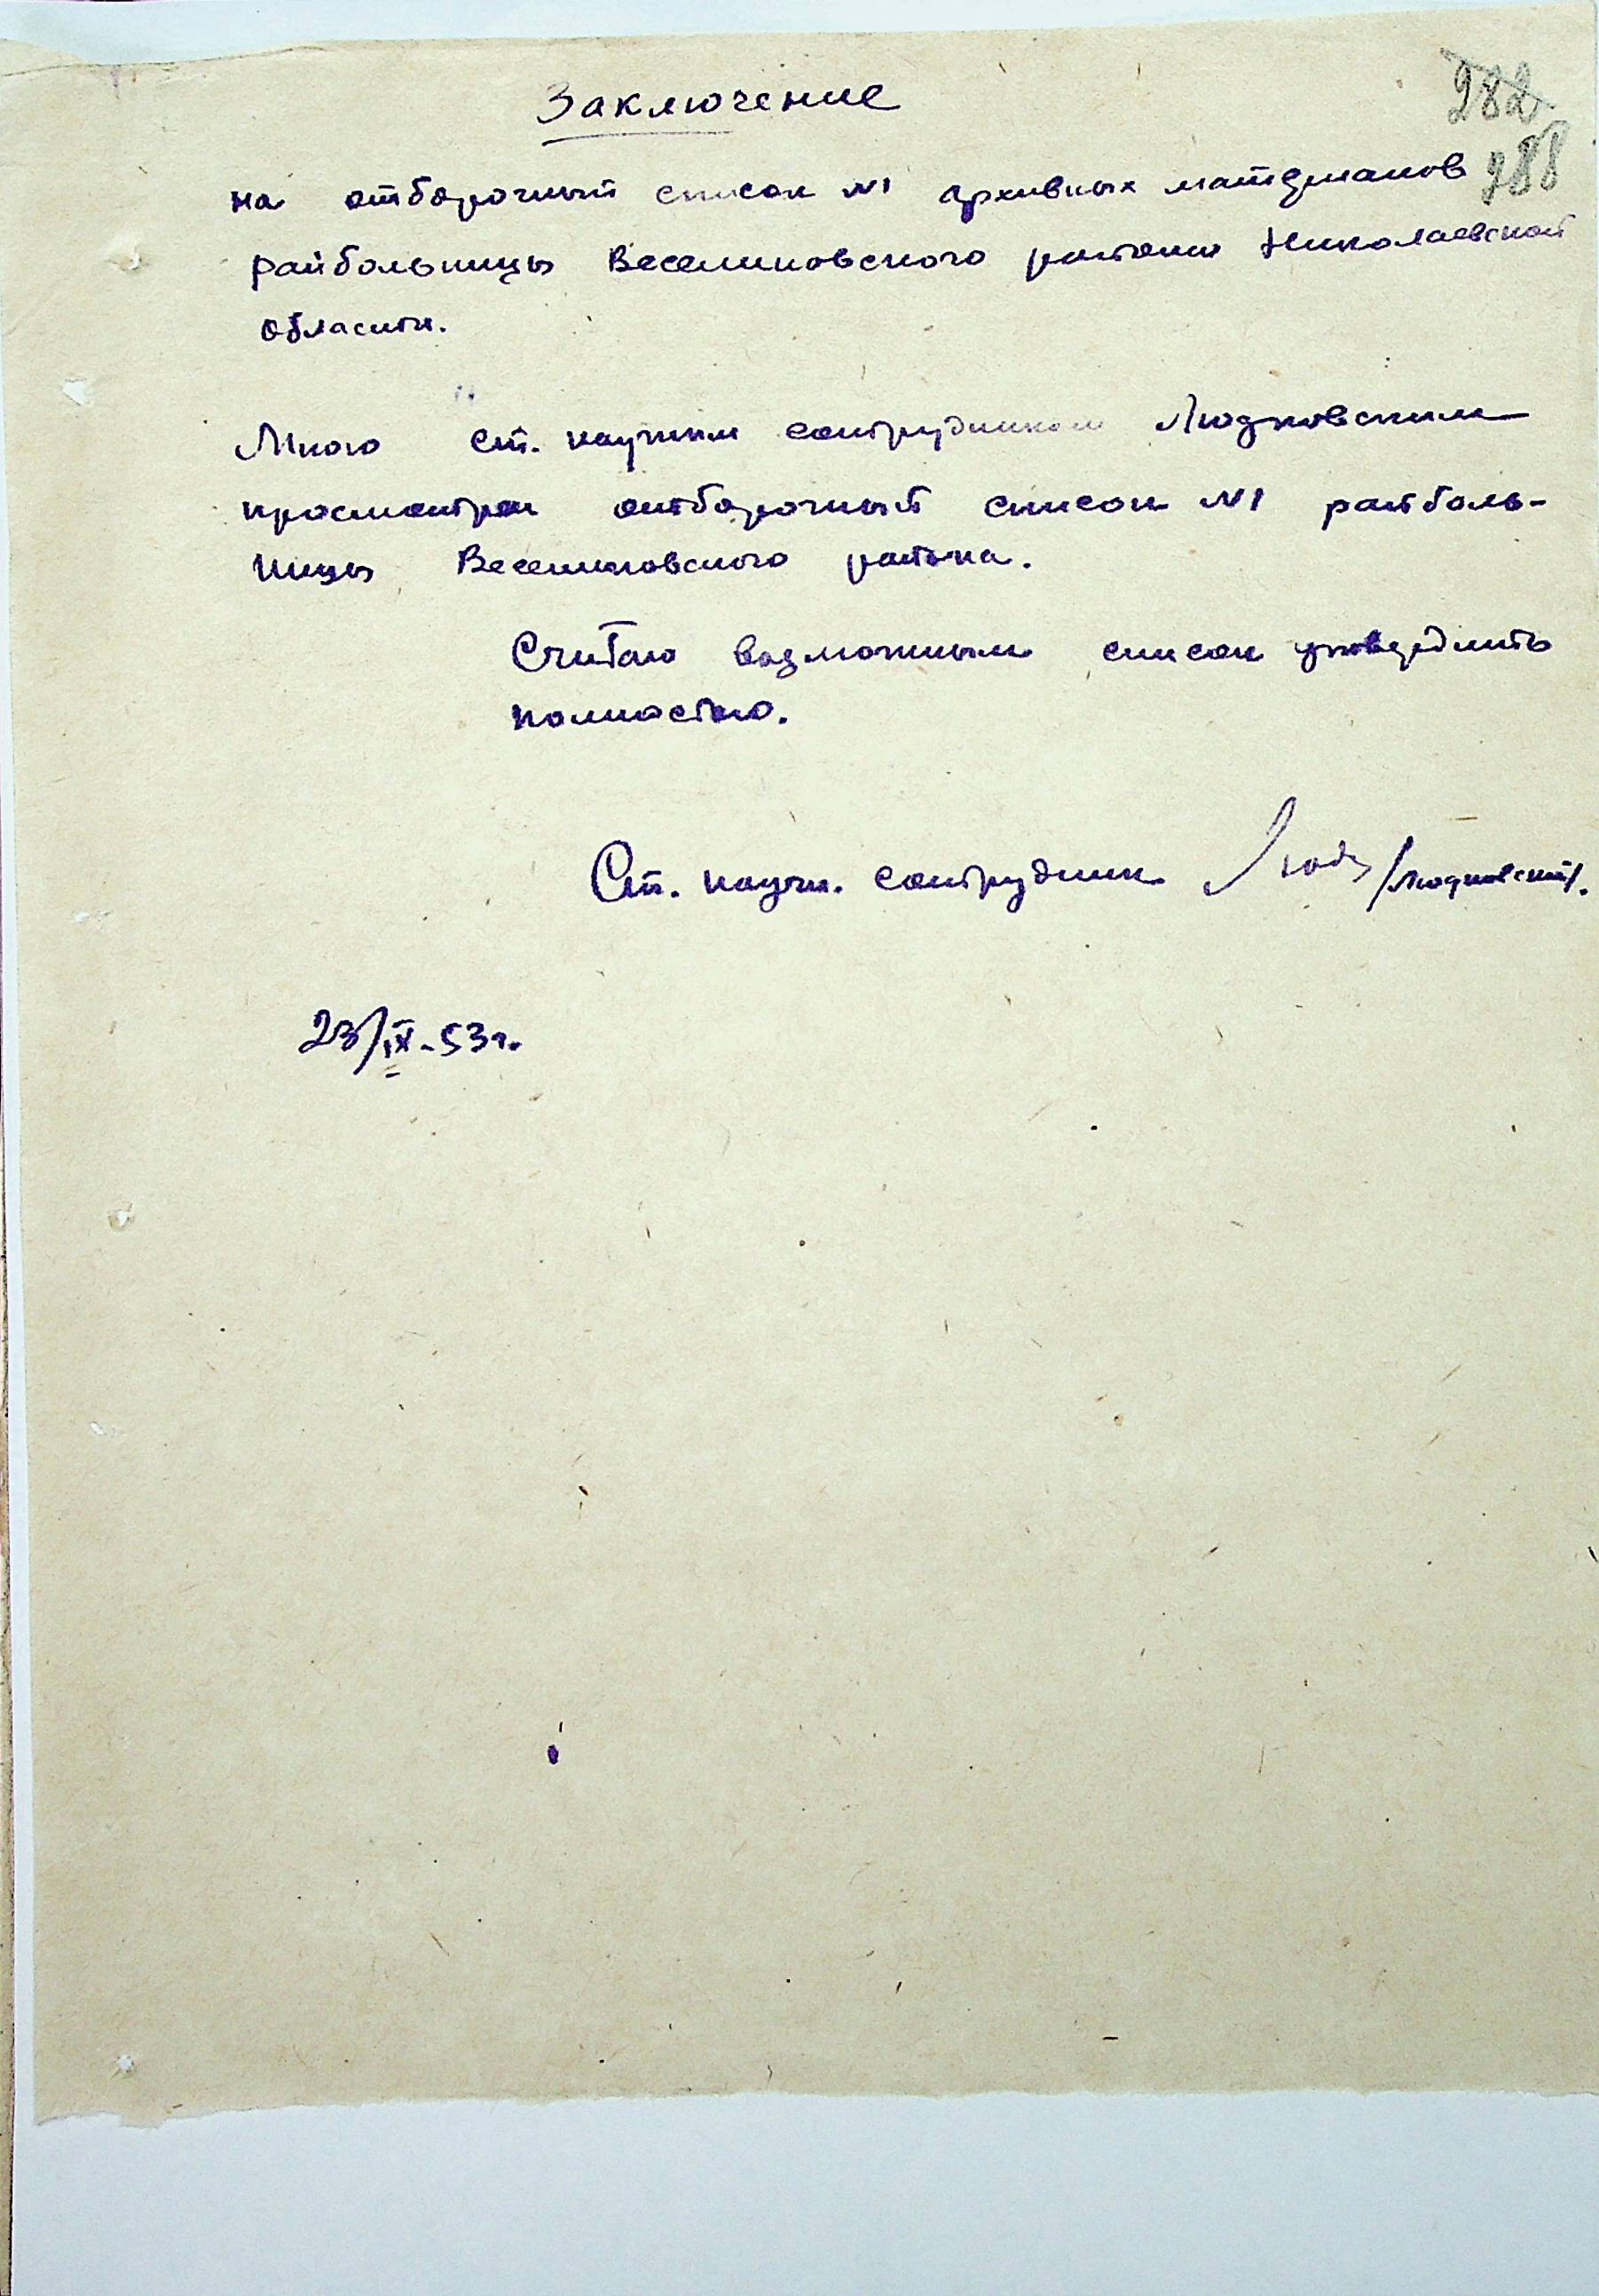 282
288
Заключение
на отборочный список №1 архивных материалов
райбольницы Веселиновского района Николаевской
области.
Мною ст. научным сотрудником Людковским
просмотрен отборочный список №1 райболь-
ницы Веселиновского района.
Считаю возможным список утвердить
полностью.
Ст. научн. сотрудник Люд /Людковский/.
23/IX-53г.